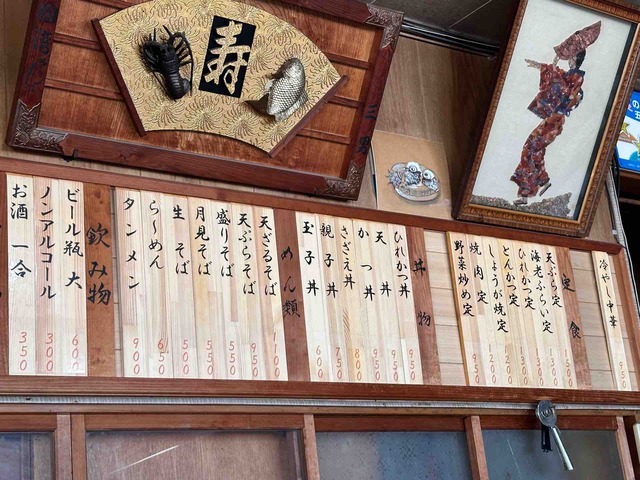 寿
冷やし中華 950
定食
天ぷら定
海老ふらい定
ひれかつ定
とんかつ定
しょうが焼定
焼肉定
野菜炒め定 950
丼物
ひれかつ丼 950
天丼 950
かつ丼
さざえ丼 800
親子丼 750
玉子丼 600
めん類
天ざるそば 1100
天ぷらそば 950
盛りそば 550
月見そば 550
生そば 500
らーめん 650
タンメン 900
飲み物
ビール瓶 大 600
ノンアルコール 300
お酒 一合 350